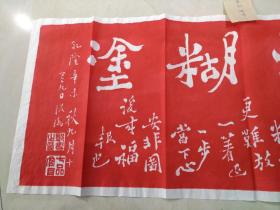 糊塗
更難放
一著退
一步
當下心
安非圖
後来福
報也
乾隆辛未秋九月十
有九日板橋